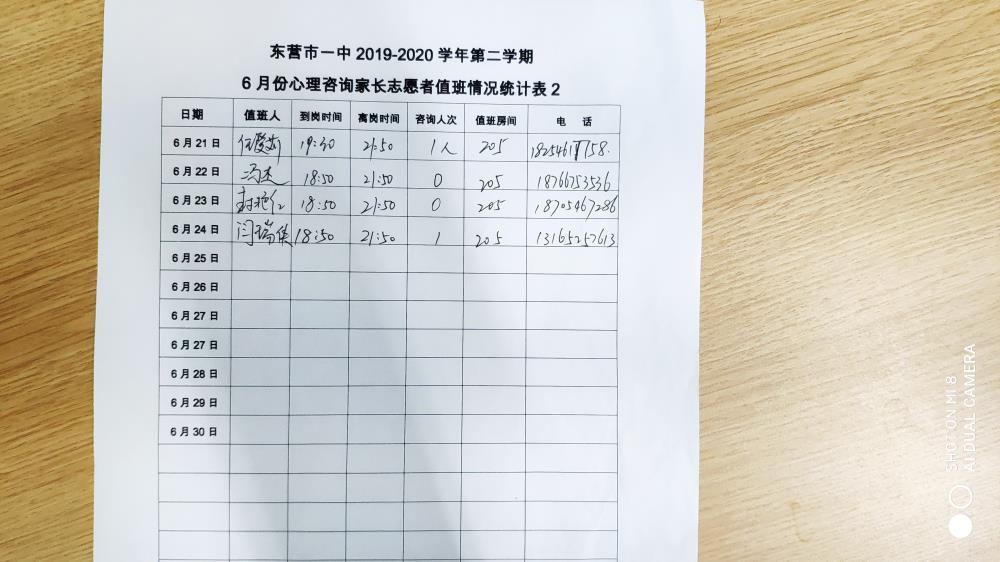 东营市一中 2019-2020 学年第二学期
6 月份心理咨询家长志愿者值班情况统计表 2
日期 值班人 到岗时间 离岗时间 咨询人次 值班房间 电 话
6 月 21 日 21:50 1人 205
6 月 22 日 冯杰 18:50 21:50 0 205 18766753536
6 月 23 日 18:50 21:50 0 205 18705467286
6 月 24 日 闫瑞侠 18:50 21:50 1 205 13165257613
6 月 25 日
6 月 26 日
6 月 27 日
6 月 27 日
6 月 28 日
6 月 29 日
6 月 30 日
SHOT ON MI 8
AI DUAL CAMERA